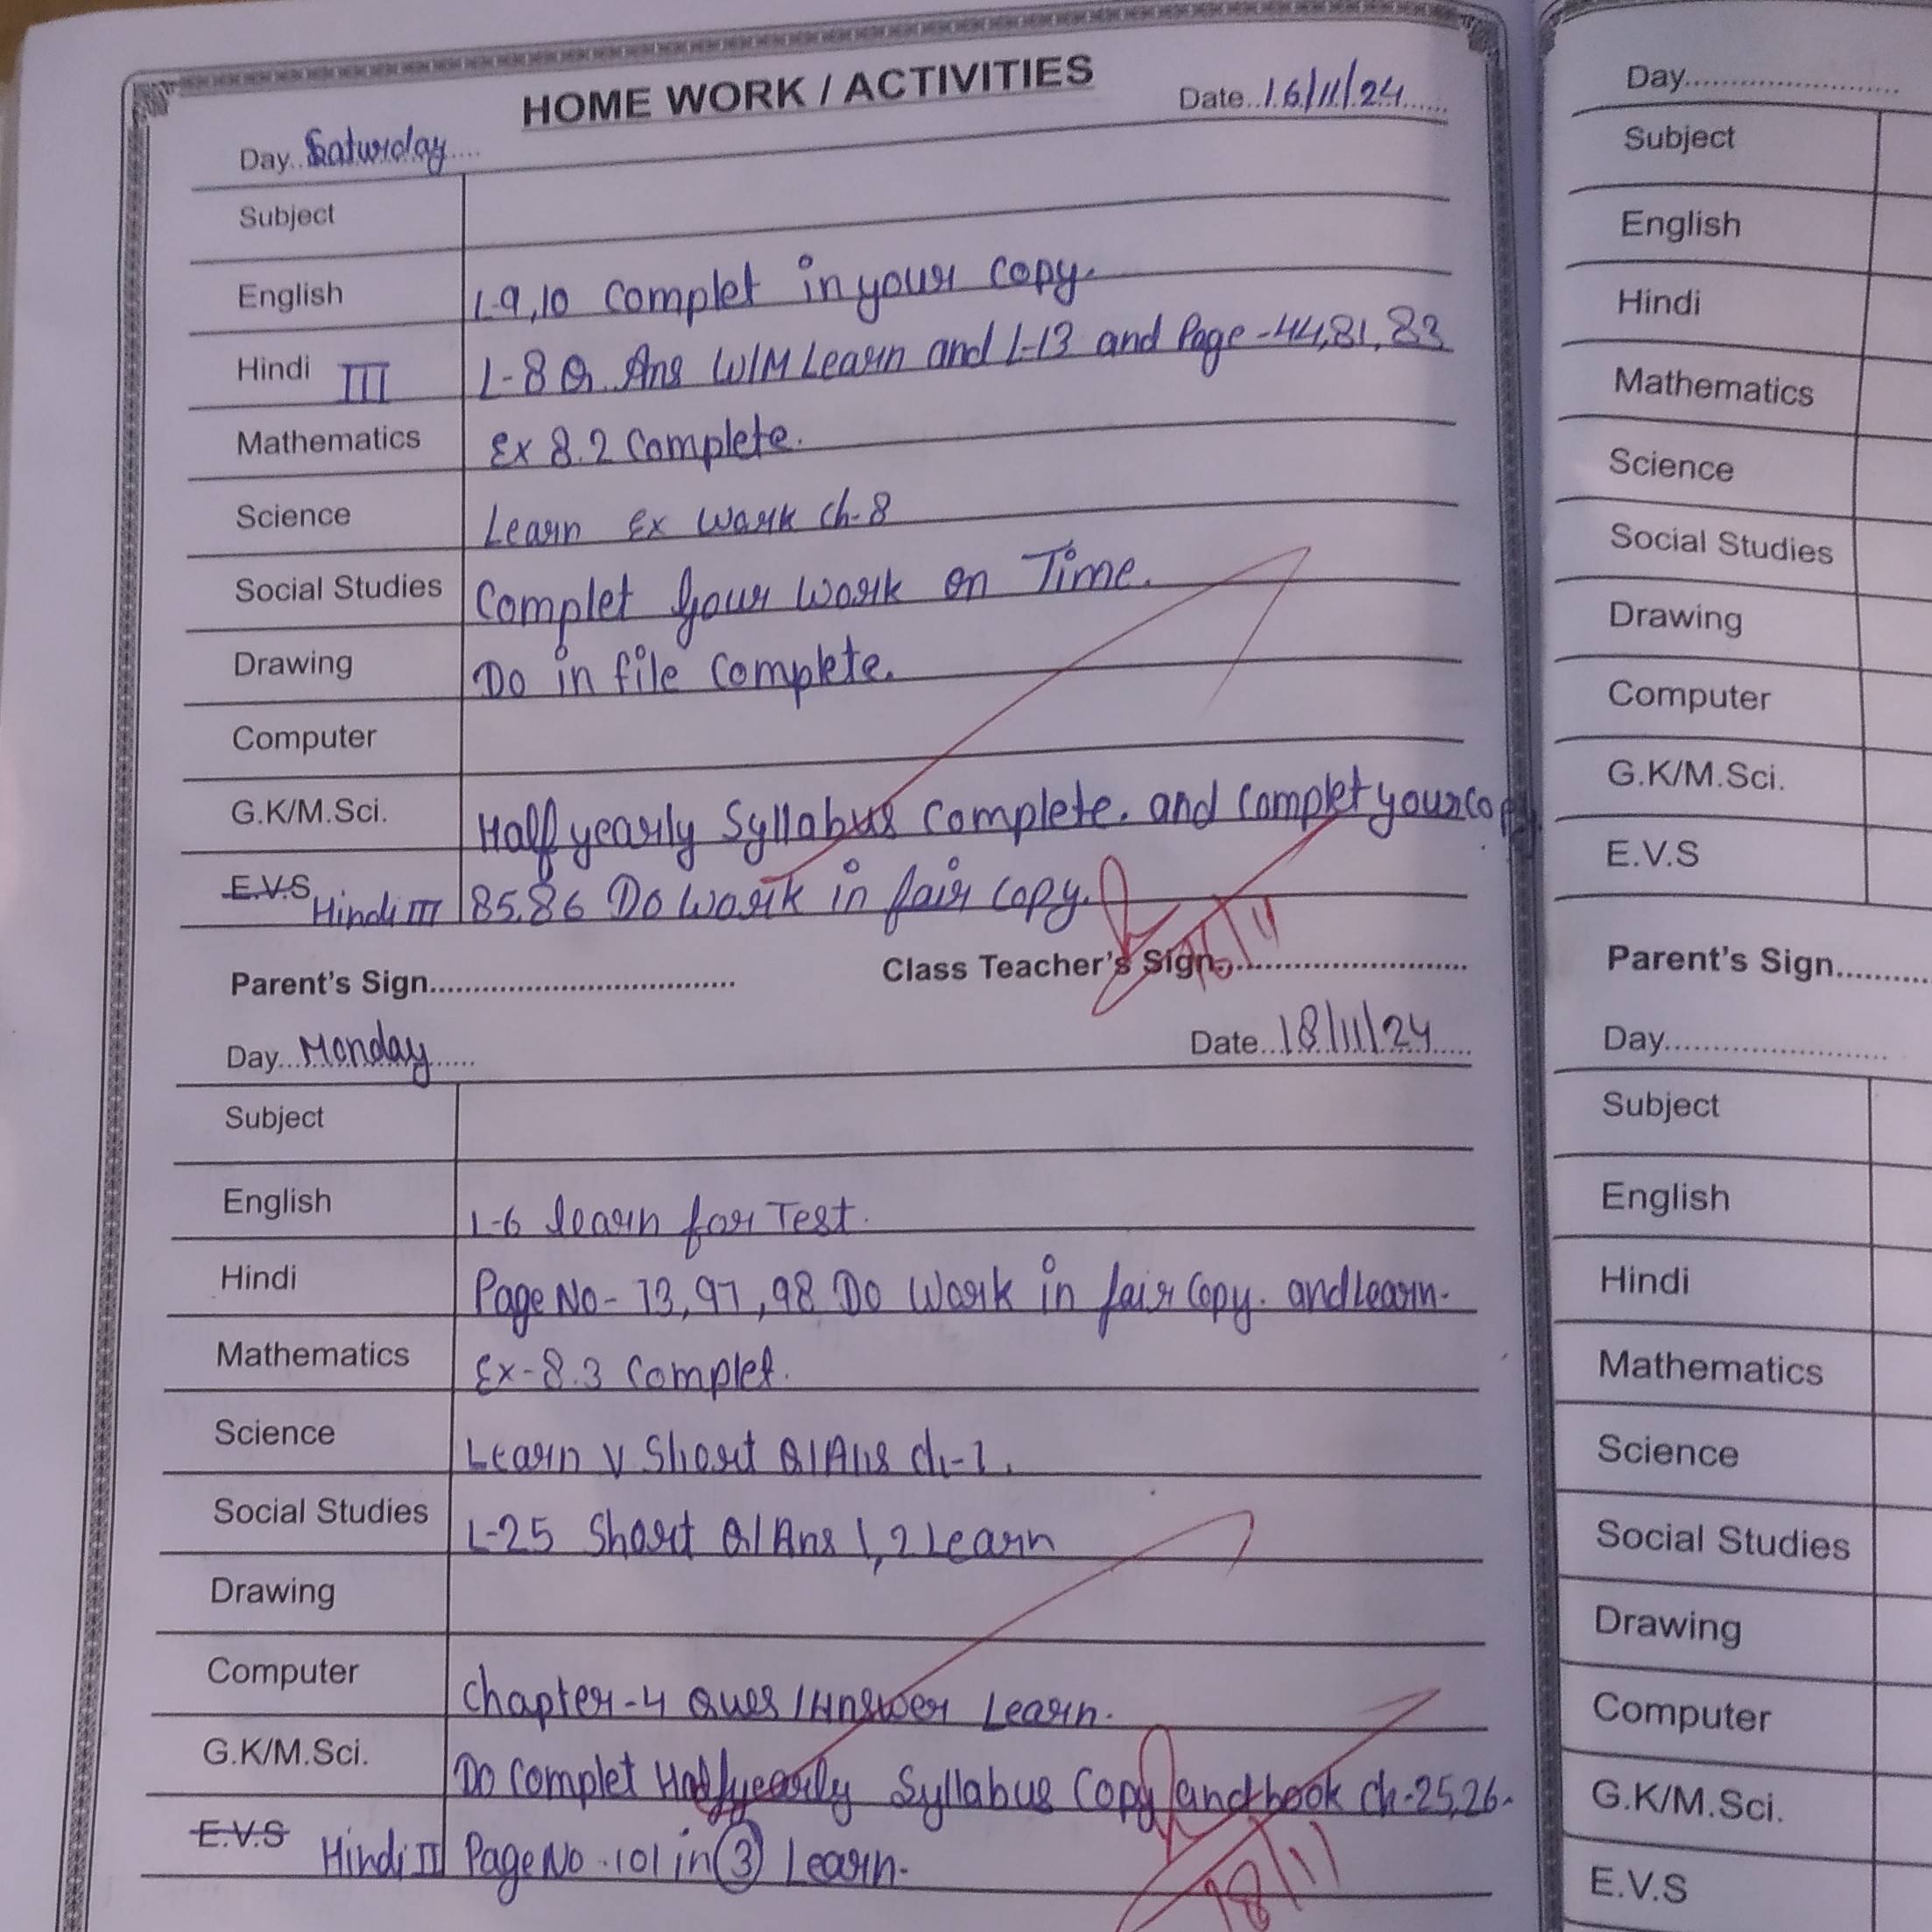 HOME WORK / ACTIVITIES
Day..Saturday....
Date..16/11/24......
Subject
English L-9,10 Complet in your copy.
Hindi III L-8 Q. Ans W/M Learn and L-13 and Page-44,81,83
Mathematics Ex 8.2 Complete.
Science Learn Ex Work Ch-8
Social Studies Complet your work on Time.
Drawing Do in file complete.
Computer
G.K/M.Sci. Half yearly Syllabus Complete. and Complet your
E.V.S Hindi III 85,86 Do work in fair copy.
16/11
Parent's Sign..................................
Class Teacher's Sign............................
Day...Monday......
Date...18/11/24.....
Subject
English L-6 learn for Test.
Hindi Page No- 73,97,98 Do Work in fair Copy. and learn.
Mathematics Ex-8.3 Complet.
Science Learn V Short Q/Ans ch-1.
Social Studies L-25 Short Q/Ans 1,2 Learn
Drawing
Computer Chapter-4 Ques/Answer Learn.
G.K/M.Sci. Do Complet Halfyearly Syllabus Copy and book ch-25,26.
E.V.S Hindi II Page No. 101 in 3 Learn.
18/11
Day........................
Subject
English
Hindi
Mathematics
Science
Social Studies
Drawing
Computer
G.K/M.Sci.
E.V.S
Parent's Sign..........
Day........................
Subject
English
Hindi
Mathematics
Science
Social Studies
Drawing
Computer
G.K/M.Sci.
E.V.S